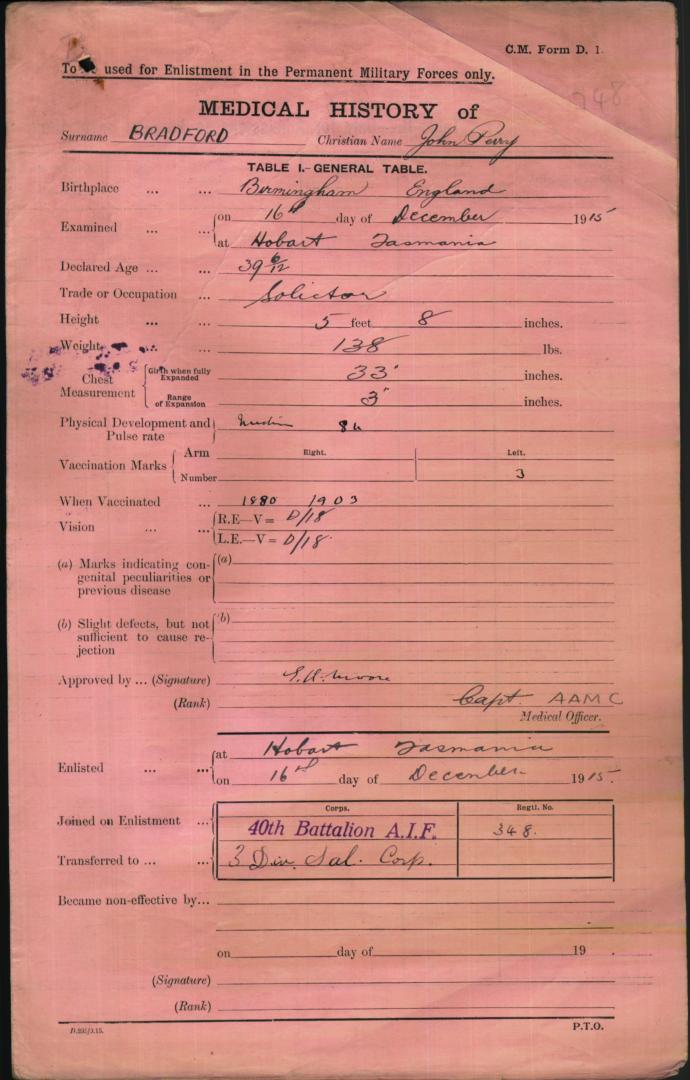 C.M. Form D. 1.
To be used for Enlistment in the Permanent Military Forces only.
348
MEDICAL HISTORY of
Surname BRADFORD Christian Name John Perry
TABLE I.—GENERAL TABLE.
Birthplace ... ... Birmingham England
Examined ... ... on 16th day of December 1915
at Hobart Tasmania
Declared Age ... ... 39 6/12
Trade or Occupation ... Solicitor
Height ... ... 5 feet 8 inches.
Weight ... ... 138 lbs.
Chest Measurement Girth when fully Expanded 33" inches.
Range of Expansion 3" inches.
Physical Development and Pulse rate Medium 84
Vaccination Marks Arm Right. Left.
Number 3
When Vaccinated ... 1880 1903
Vision ... ... R.E—V= D/18
L.E.—V= D/18
(a) Marks indicating congenital peculiarities or previous disease (a)
(b) Slight defects, but not sufficient to cause rejection (b)
Approved by ... (Signature) Moore
(Rank) Capt. AAMC
Medical Officer.
Enlisted ... ... at Hobart Tasmania
on 16th day of December 1915
Corps. Regtl. No.
Joined on Enlistment ... 40th Battalion A.I.F. 348.
Transferred to ... ... 3 Div. Sal. Corp.
Became non-effective by...
on day of 19
(Signature)
(Rank)
D.295/3.15. P.T.O.